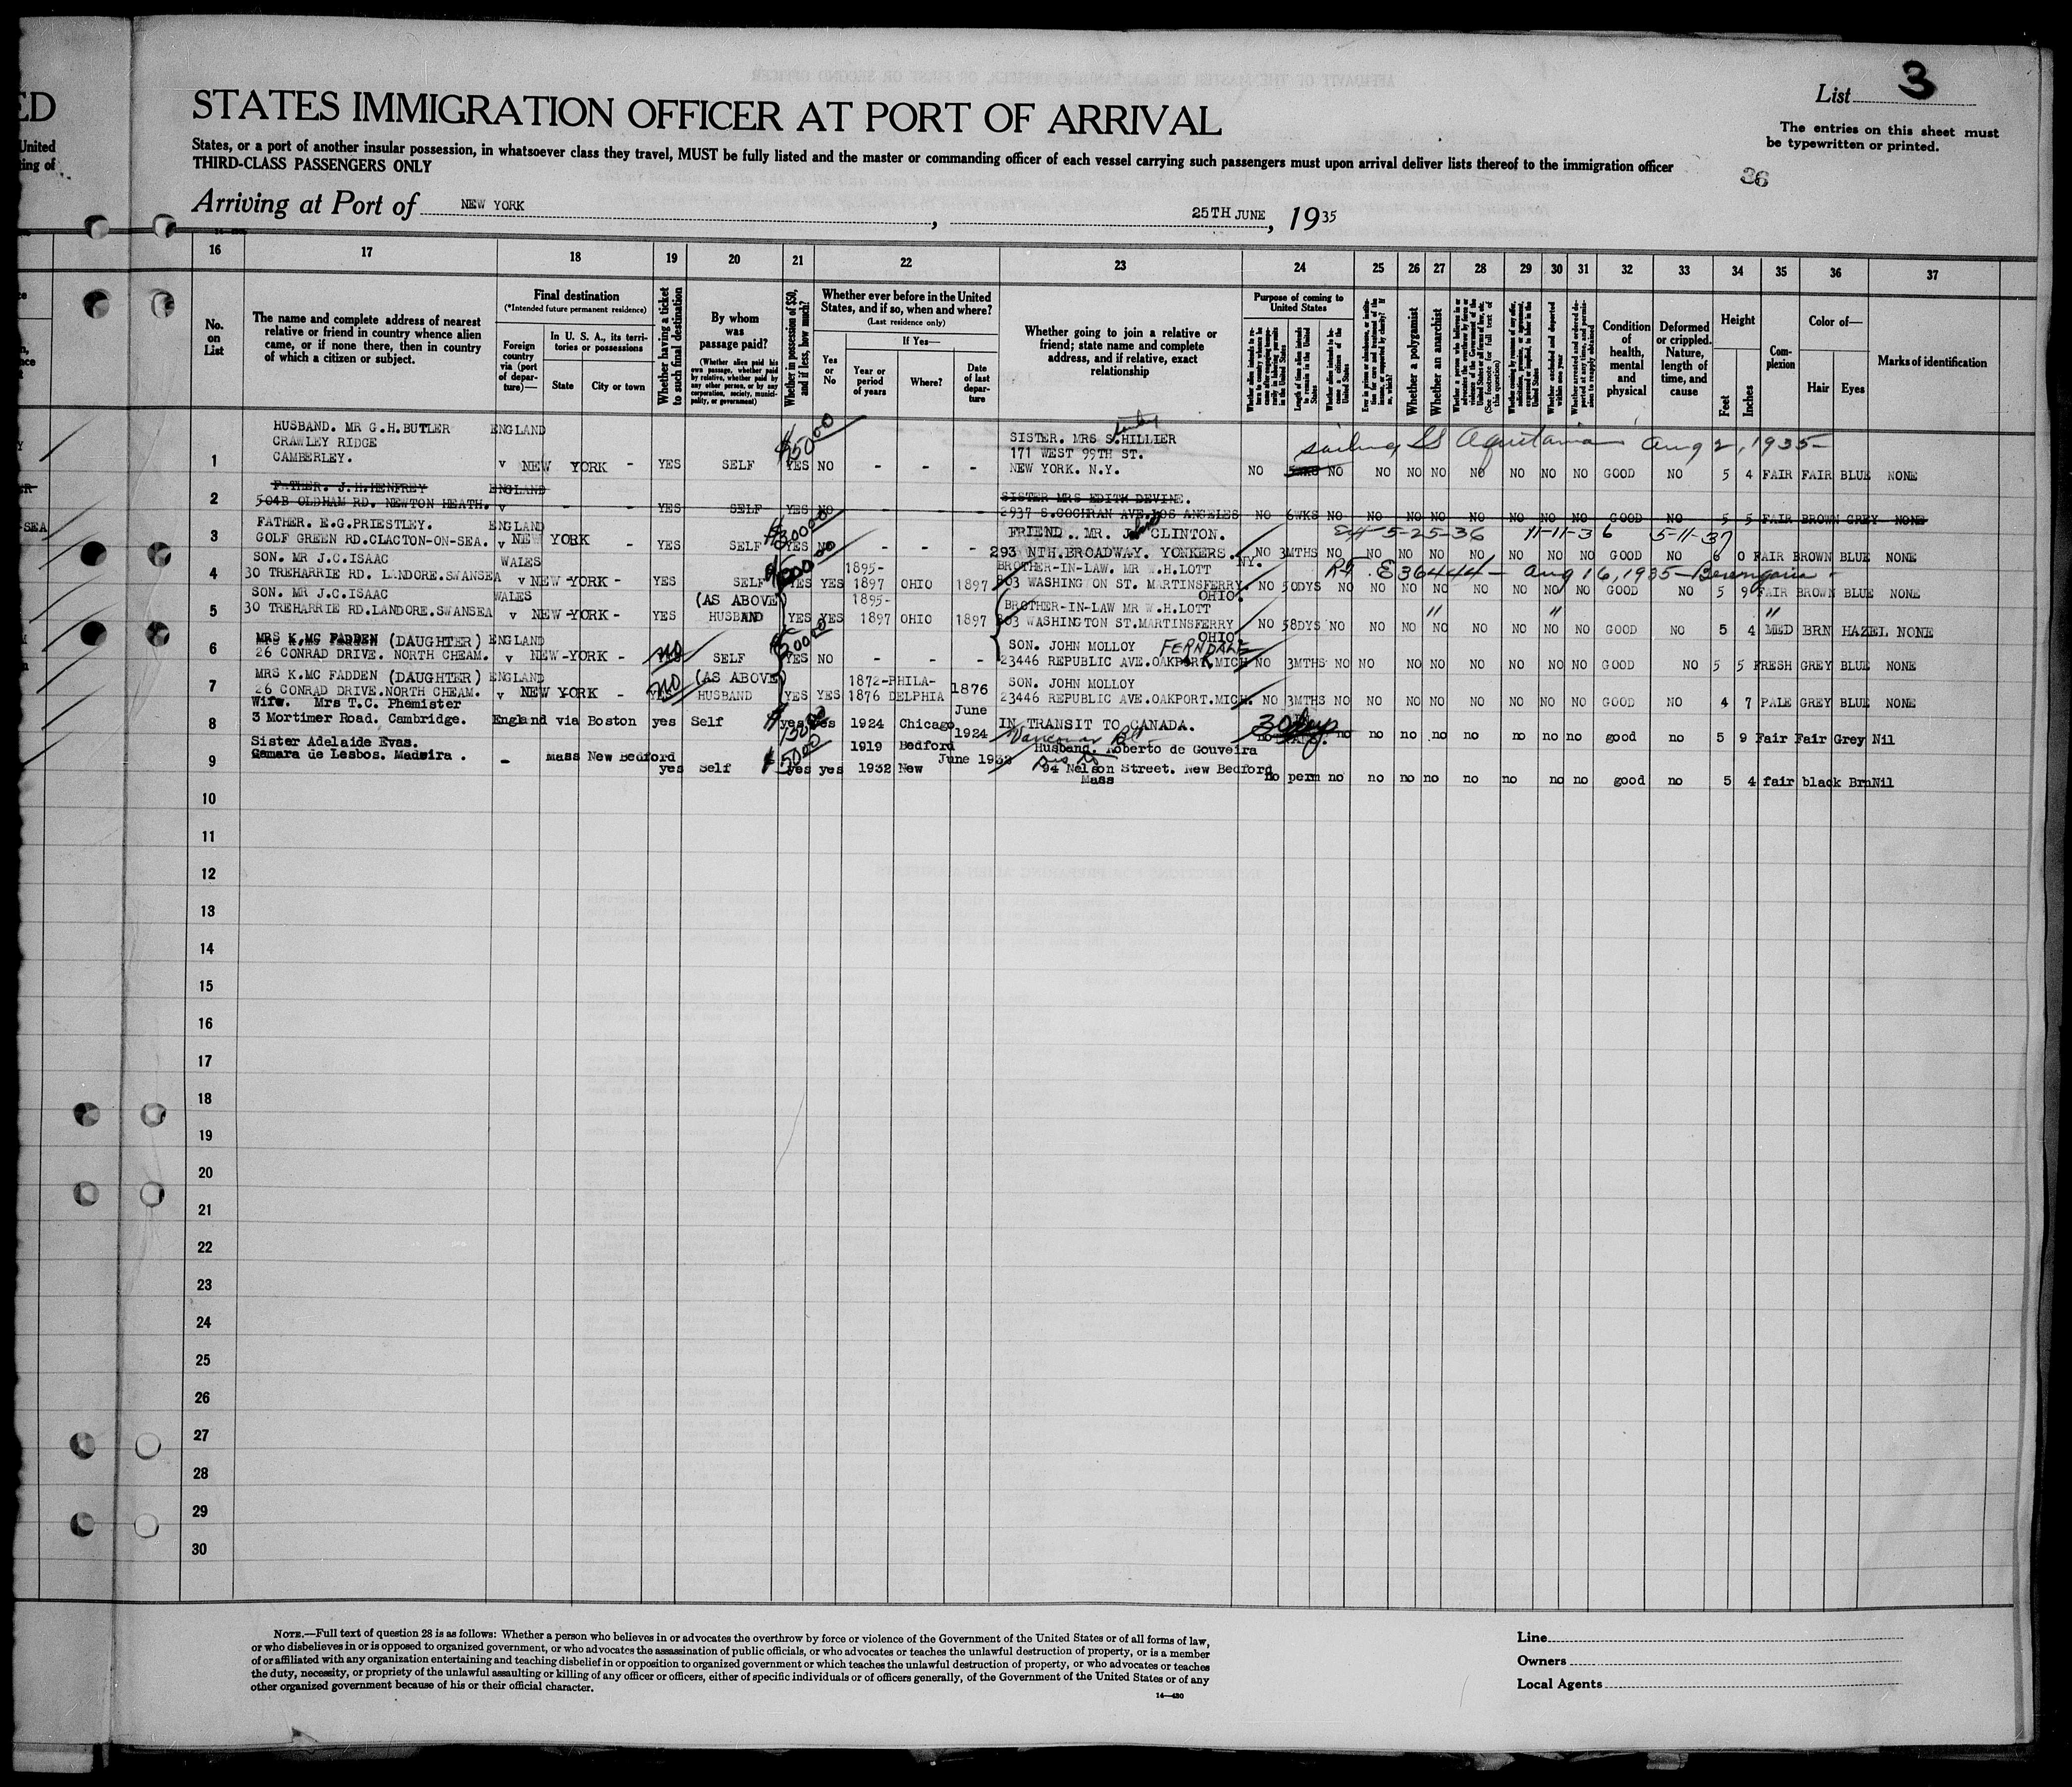 ED
United
ing of
List 3
STATES IMMIGRATION OFFICER AT PORT OF ARRIVAL
The entries on this sheet must
be typewritten or printed.
States, or a port of another insular possession, in whatsoever class they travel, MUST be fully listed and the master or commanding officer of each vessel carrying such passengers must upon arrival deliver lists thereof to the immigration officer
THIRD-CLASS PASSENGERS ONLY
36
Arriving at Port of NEW YORK, 25TH JUNE, 1935
16 17 18 19 20 21 22 23 24 25 26 27 28 29 30 31 32 33 34 35 36 37
No. on List
The name and complete address of nearest
relative or friend in country whence alien
came, or if none there, then in country
of which a citizen or subject.
Final destination
(*Intended future permanent residence)
Foreign country via (port of departure)—
In U. S. A., its territories or possessions
State
City or town
Whether having a ticket to such final destination
By whom was passage paid?
(Whether alien paid his own passage, whether paid by relative, whether paid by any other person, or by any corporation, society, municipality, or government)
Whether in possession of $50, and if less, how much?
Whether ever before in the United
States, and if so, when and where?
(Last residence only)
Yes or No
If Yes—
Year or period of years
Where?
Date of last departure
Whether going to join a relative or
friend; state name and complete
address, and if relative, exact
relationship
Purpose of coming to United States
Length of time alien intends to remain in the United States
Whether a polygamist
Whether an anarchist
Condition of health, mental and physical
Deformed or crippled. Nature, length of time, and cause
Height
Feet
Inches
Complexion
Color of—
Hair
Eyes
Marks of identification
sailing SS Aquitania Aug 2, 1935
HUSBAND. MR G.H.BUTLER ENGLAND SISTER. MRS S.HILLIER
CRAWLEY RIDGE 171 WEST 99TH ST.
1 CAMBERLEY. v NEW YORK - YES SELF $250 00 YES NO - - - NEW YORK. N.Y. NO NO NO NO NO NO NO NO NO GOOD NO 5 4 FAIR FAIR BLUE NONE
FATHER. J.H.HENFREY ENGLAND SISTER MRS EDITH DEVINE.
2 504B OLDHAM RD. NEWTON HEATH. v YES SELF YES NO 2937 S.COCHRAN AVE.LOS ANGELES NO 6WKS NO NO NO NO NO NO NO NO GOOD NO 5 5 FAIR BROWN GREY NONE
FATHER. E.G.PRIESTLEY. ENGLAND FRIEND. MR. J. CLINTON. 5-25-36 11-11-36 5-11-37
3 GOLF GREEN RD.CLACTON-ON-SEA. v NEW YORK - YES SELF $300 00 YES NO - - - 293 NTH.BROADWAY. YONKERS. NY. NO 3MTHS NO NO NO NO NO NO NO NO GOOD NO 6 0 FAIR BROWN BLUE NONE
SON. MR J.C.ISAAC WALES 1895- BROTHER-IN-LAW. MR W.H.LOTT E36444 - Aug 16, 1935 - Berengaria
4 30 TREHARRIE RD. LANDORE.SWANSEA v NEW-YORK - YES SELF YES YES 1897 OHIO 1897 903 WASHINGTON ST. MARTINSFERRY OHIO. NO 50DYS NO NO NO NO NO NO NO NO GOOD NO 5 9 FAIR BROWN BLUE NONE
SON. MR J.C.ISAAC WALES (AS ABOVE) 1895- BROTHER-IN-LAW MR W.H.LOTT " " "
5 30 TREHARRIE RD.LANDORE.SWANSEA v NEW-YORK - YES HUSBAND YES YES 1897 OHIO 1897 903 WASHINGTON ST.MARTINSFERRY OHIO. NO 58DYS NO NO NO NO NO NO NO NO GOOD NO 5 4 MED BRN HAZEL NONE
MRS K.MC FADDEN (DAUGHTER) ENGLAND SON. JOHN MOLLOY FERNDALE
6 26 CONRAD DRIVE. NORTH CHEAM. v NEW-YORK - NO SELF YES NO - - - 23446 REPUBLIC AVE.OAKPARK.MICH NO 3MTHS NO NO NO NO NO NO NO NO GOOD NO 5 5 FRESH GREY BLUE NONE
MRS K.MC FADDEN (DAUGHTER) ENGLAND (AS ABOVE) 1872-PHILA- SON. JOHN MOLLOY
7 26 CONRAD DRIVE.NORTH CHEAM. v NEW YORK - NO HUSBAND YES YES 1876 DELPHIA 1876 23446 REPUBLIC AVE.OAKPORT.MICH. NO 3MTHS NO NO NO NO NO NO NO NO GOOD NO 4 7 PALE GREY BLUE NONE
Wife. Mrs T.C. Phemister June
8 3 Mortimer Road. Cambridge. England via Boston yes Self yes yes 1924 Chicago 1924 IN TRANSIT TO CANADA. 30 Days no no no no no no no no no good no 5 9 Fair Fair Grey Nil
Vancouver BC
Sister Adelaide Evas. 1919 Bedford Husband. Roberto de Gouveira
9 Camara de Lesbos. Madeira. - Mass New Bedford yes Self $50 00 yes yes 1932 New June 1932 94 Nelson Street. New Bedford no perm no no no no no no no no good no 5 4 fair black Brn Nil
Mass
10
11
12
13
14
15
16
17
18
19
20
21
22
23
24
25
26
27
28
29
30
NOTE.—Full text of question 28 is as follows: Whether a person who believes in or advocates the overthrow by force or violence of the Government of the United States or of all forms of law,
or who disbelieves in or is opposed to organized government, or who advocates the assassination of public officials, or who advocates or teaches the unlawful destruction of property, or is a member
of or affiliated with any organization entertaining and teaching disbelief in or opposition to organized government or which teaches the unlawful destruction of property, or who advocates or teaches
the duty, necessity, or propriety of the unlawful assaulting or killing of any officer or officers, either of specific individuals or of officers generally, of the Government of the United States or of any
other organized government because of his or their official character.
14—480
Line
Owners
Local Agents